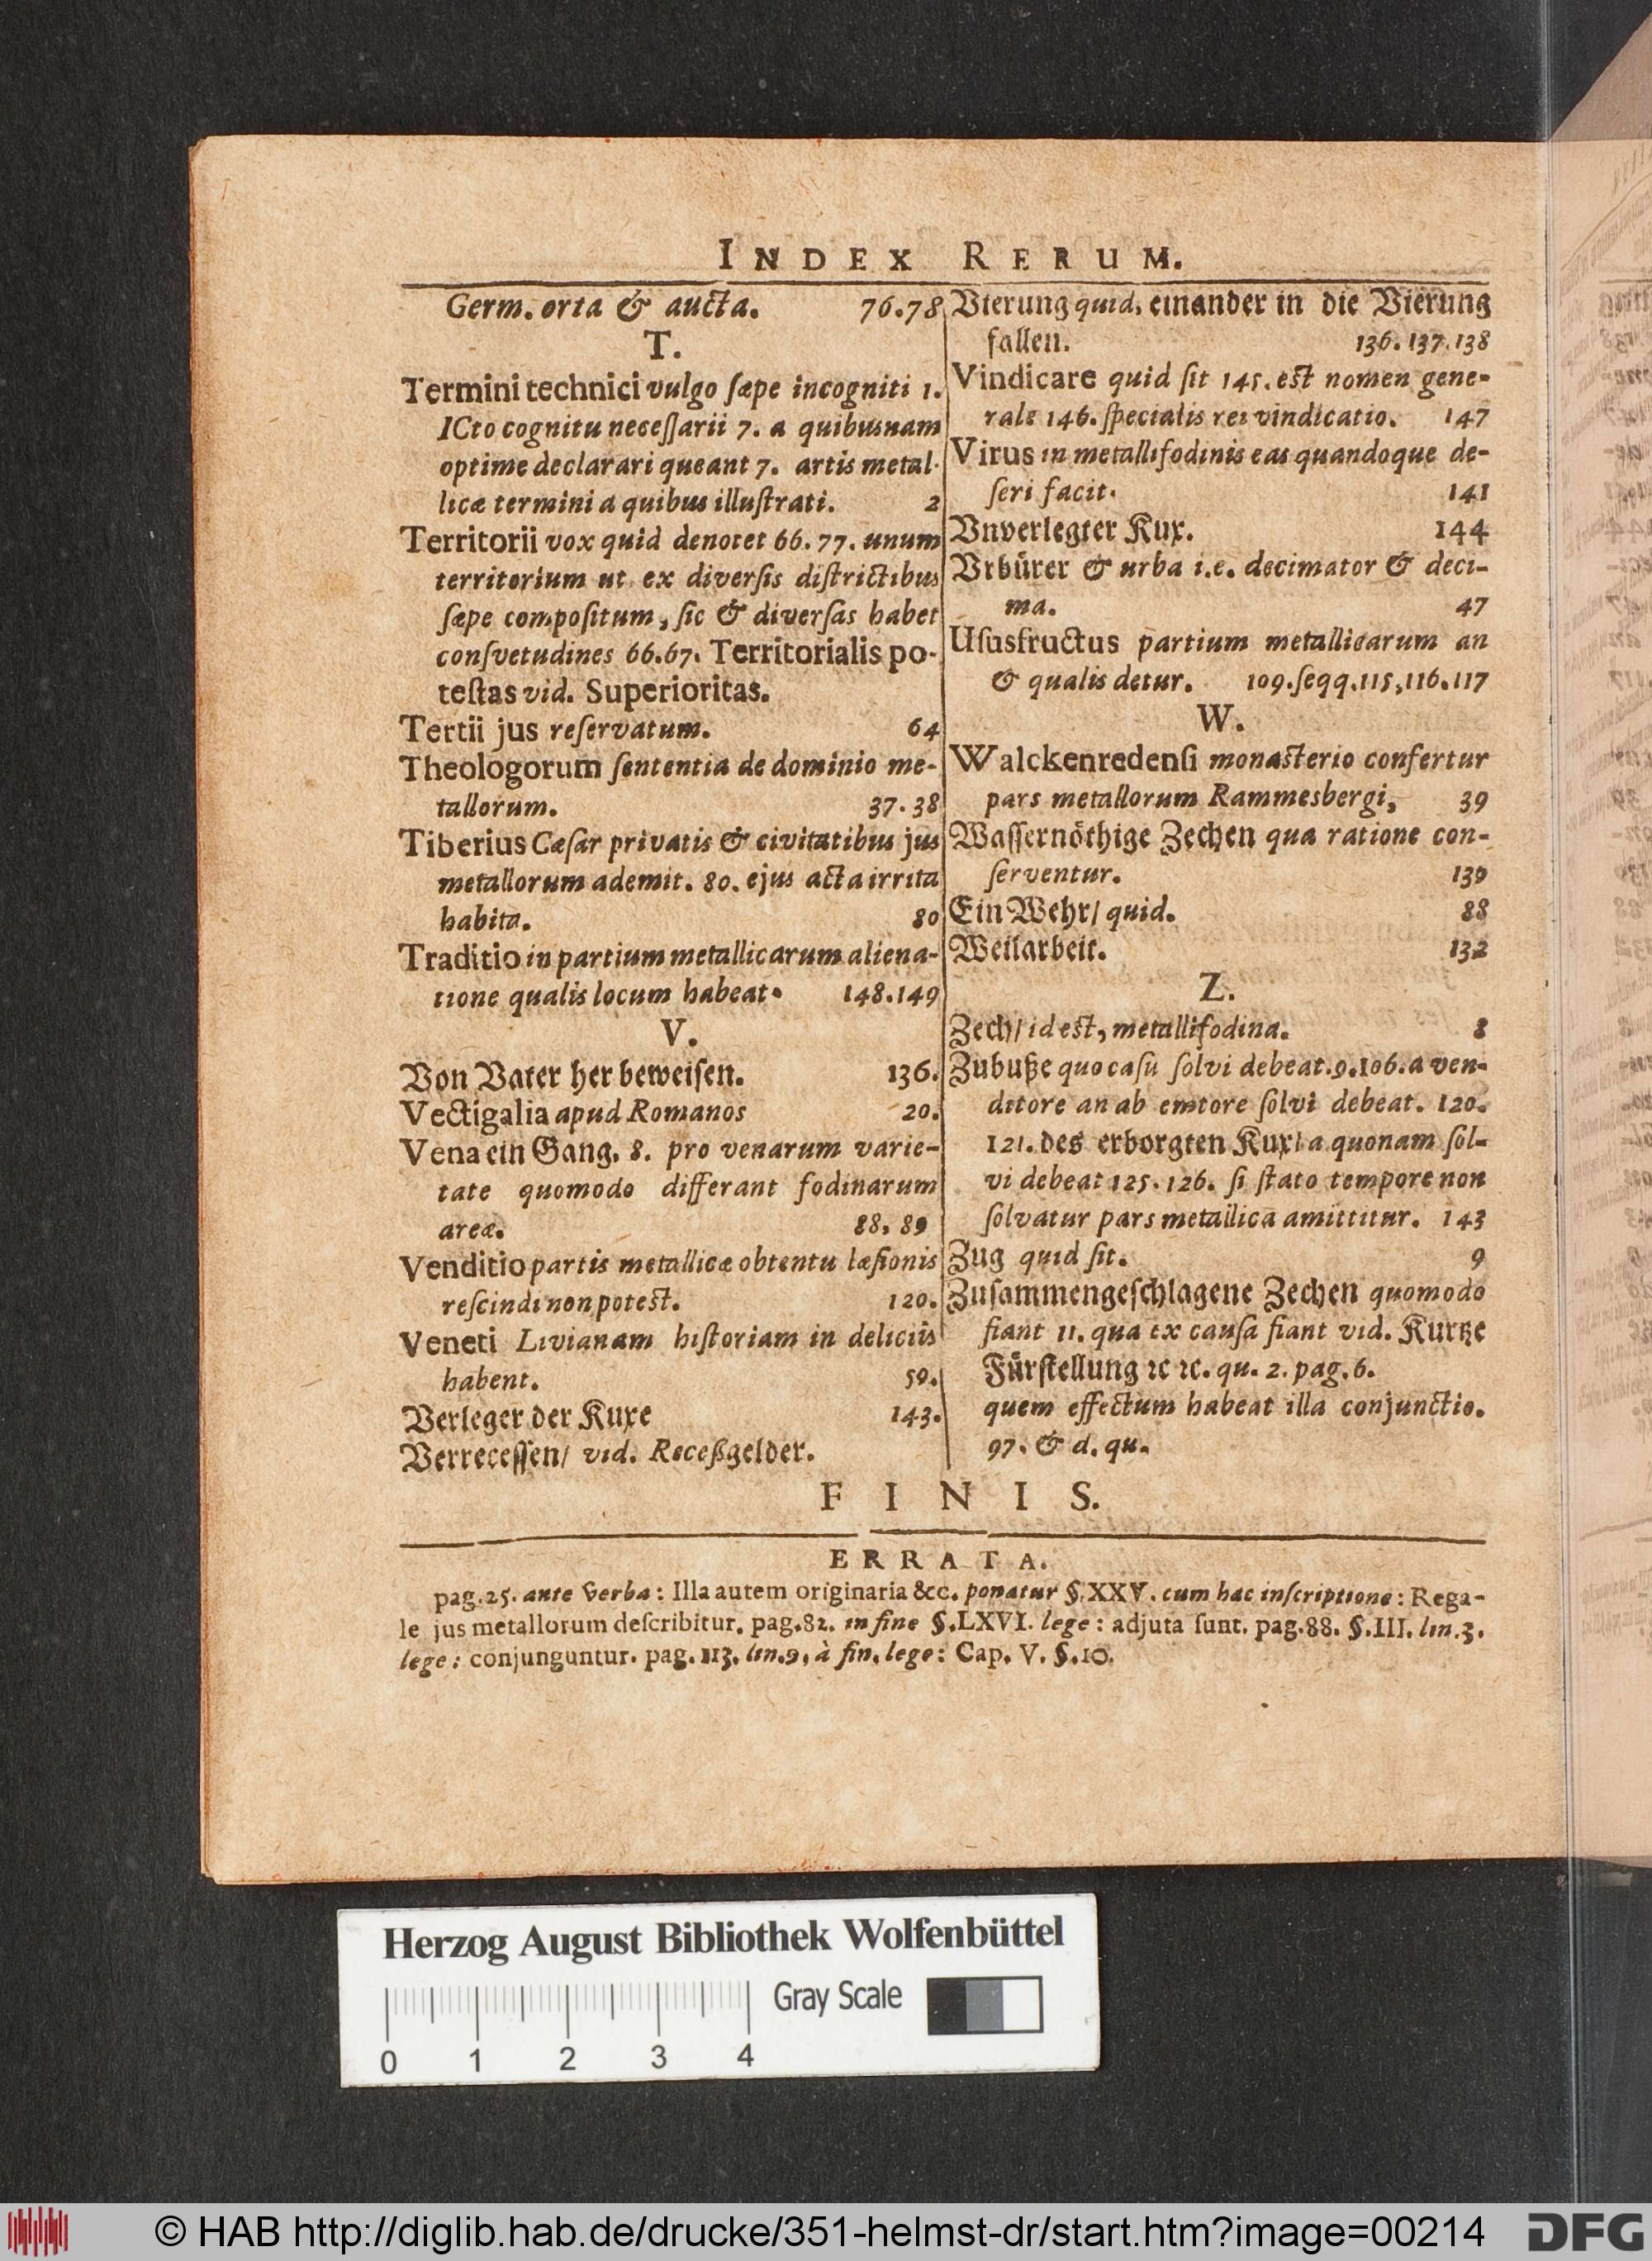 INDEX RERUM.
Germ. orta & aucta. 76.78
T.
Termini technici vulgo sæpe incogniti 1.
ICto cognitu necessarii 7. a quibusnam
optime declarari queant 7. artis metal-
licæ termini a quibus illustrati. 2
Territorii vox quid denotet 66. 77. unum
territorium ut ex diversis districtibus
sæpe compositum, sic & diversas habet
consvetudines 66.67. Territorialis po-
testas vid. Superioritas.
Tertii jus reservatum. 64
Theologorum sententia de dominio me-
tallorum. 37.38
Tiberius Cæsar privatis & civitatibus jus
metallorum ademit. 80. ejus acta irrita
habita. 80
Traditio in partium metallicarum aliena-
tione qualis locum habeat. 148.149
V.
Von Vater her beweisen. 136.
Vectigalia apud Romanos 20.
Vena ein Gang. 8. pro venarum varie-
tate quomodo differant fodinarum
areæ. 88, 89
Venditio partis metallicæ obtentu læsionis
rescindi non potest. 120.
Veneti Livianam historiam in deliciis
habent. 59.
Verleger der Kuxe 143.
Verrecessen/ vid. Receßgelder.
Vierung quid, einander in die Vierung
fallen. 136.137.138
Vindicare quid sit 145. est nomen gene-
rale 146. specialis rei vindicatio. 147
Virus in metallifodinis eas quandoque de-
seri facit. 141
Vnverlegter Kux. 144
Vrbürer & urba i.e. decimator & deci-
ma. 47
Ususfructus partium metallicarum an
& qualis detur. 109.seqq.115,116.117
W.
Walckenredensi monasterio confertur
pars metallorum Rammesbergi, 39
Wassernöthige Zechen qua ratione con-
serventur. 139
Ein Wehr/ quid. 88
Weilarbeit. 132
Z.
Zech/ id est, metallifodina. 8
Zubuße quo casu solvi debeat.9.106.a ven-
ditore an ab emtore solvi debeat. 120.
121. des erborgten Kux/ a quonam sol-
vi debeat 125.126. si stato tempore non
solvatur pars metallica amittitur. 143
Zug quid sit. 9
Zusammengeschlagene Zechen quomodo
fiant 11. qua ex causa fiant vid. Kurtze
Fürstellung ꝛc ꝛc. qu. 2. pag. 6.
quem effectum habeat illa conjunctio.
97. & d. qu.
FINIS.
ERRATA.
pag.25. ante verba: Illa autem originaria &c. ponatur §.XXV. cum hac inscriptione: Rega-
le jus metallorum describitur. pag.82. in fine §.LXVI. lege: adjuta sunt. pag.88. §.III. lin.3.
lege: conjunguntur. pag. 113. lin.9, à fin. lege: Cap. V. §.10.
Herzog August Bibliothek Wolfenbüttel
Gray Scale
0 1 2 3 4
© HAB http://diglib.hab.de/drucke/351-helmst-dr/start.htm?image=00214 DFG